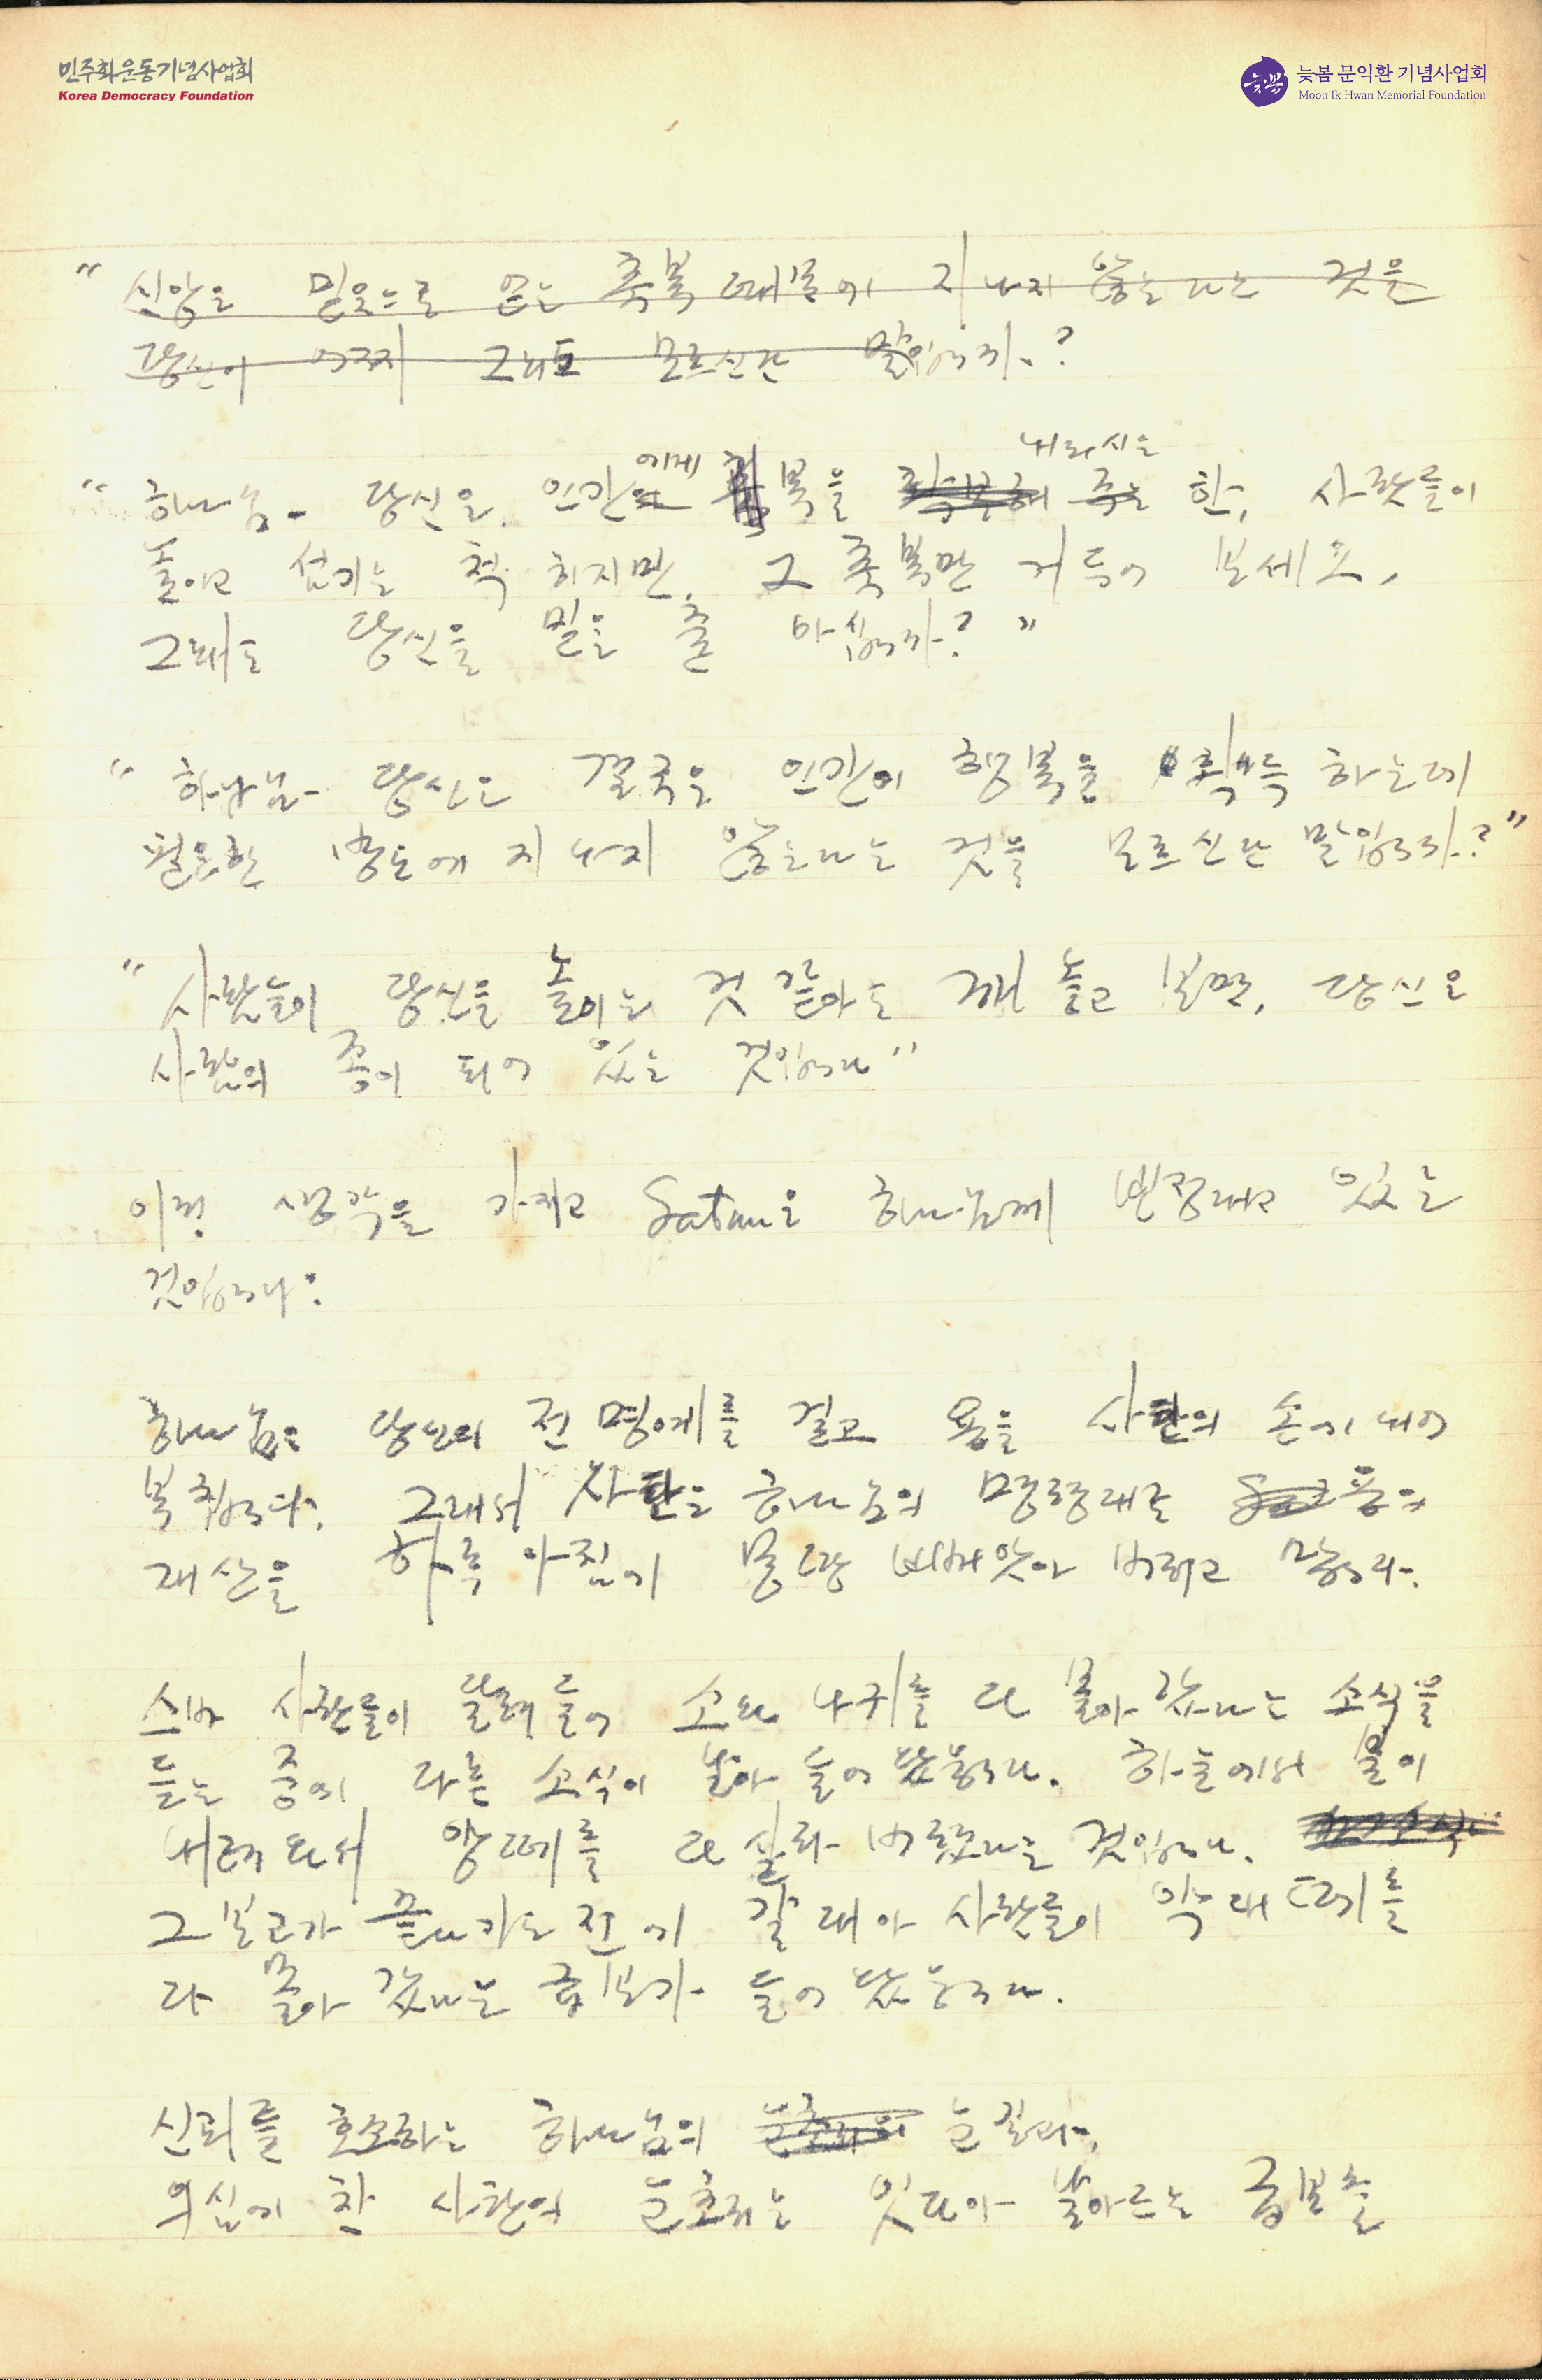 민주화운동기념사업회
Korea Democracy Foundation
늦봄
늦봄 문익환 기념사업회
Moon Ik Hwan Memorial Foundation
" 신앙은 믿음으로 얻는 축복 때문에 지나지 않는다는 것을
당신이 어쩌지 그리도 모르신단 말입니까?
에게 내리시는
" 하나님. 당신은 인간 복을 주는 한, 사람들이
높이고 섬기는 척 하지만, 그 축복만 거두어 보세요,
그래도 당신을 믿을 줄 아십니까? "
" 하나님. 당신은 결국은 인간이 행복을 획득 하는데
필요한 방도에 지나지 않는다는 것을 모르신단 말입니까? "
" 사람들이 당신을 높이는 것 같아도 깨 놓고 보면, 당신은
사람의 종이 되어 있는 것입니다 "
이런 생각을 가지고 Satan은 하나님께 빈정대고 있는
것입니다.
하나님은 당신의 전 명예를 걸고 욥을 사탄의 손에 내어
붙입니다. 그래서 사탄은 하나님의 명령대로 욥의
재산을 하루 아침에 몽땅 빼앗아 버리고 맙니다.
스바 사람들이 달려 들어 소와 나귀를 다 몰아 갔다는 소식을
듣는 중에 다른 소식이 날아 들어 왔습니다. 하늘에서 불이
내려 와서 양떼를 다 살라 버렸다는 것입니다.
그 보고가 끝나기도 전에 갈대아 사람들이 약대 떼를
다 몰아 갔다는 급보가 들어 왔습니다.
신뢰를 호소하는 하나님의 눈길과,
의심에 찬 사탄의 눈초리는 잇달아 날아드는 급보를